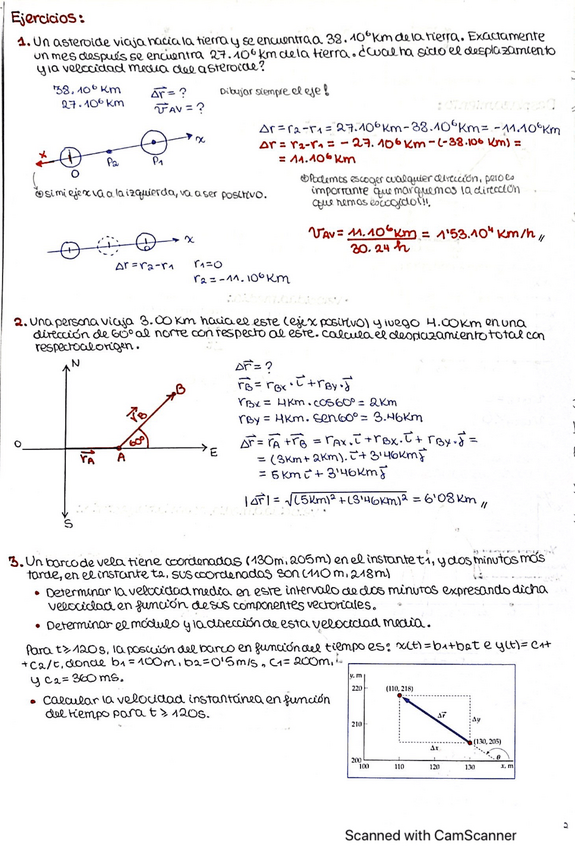 Ejercicios:
1. Un asteroide viaja hacia la tierra y se encuentra a 38.10⁶ km de la tierra. Exactamente
un mes después se encuentra 27.10⁶ km de la tierra. ¿Cuál ha sido el desplazamiento
y la velocidad media del asteroide?
38.10⁶ km
27.10⁶ km
Δr⃗ = ?
v⃗AV = ?
Dibujar siempre el eje!
Δr = r2 - r1 = 27.10⁶ km - 38.10⁶ km = -11.10⁶ km
Δr = r2 - r1 = - 27.10⁶ km - (-38.10⁶ km) =
= 11.10⁶ km
x
O
P2
P1
x
si mi eje x va a la izquierda, va a ser positivo.
Podemos escoger cualquier dirección, pero es
importante que marquemos la dirección
que hemos escogido!!!
VAV = 11.10⁶ km / 30.24 h = 1'53.10⁴ km/h //
x
Δr = r2 - r1
r1 = 0
r2 = -11.10⁶ km
2. Una persona viaja 3.00 km hacia el este (eje x positivo) y luego 4.00 km en una
dirección de 60° al norte con respecto al este. Calcula el desplazamiento total con
respecto al origen.
N
B
r⃗B
60°
O
r⃗A
A
E
S
Δr⃗ = ?
r⃗B = rBx · i⃗ + rBy · j⃗
rBx = 4km · cos60° = 2km
rBy = 4km · sen60° = 3.46km
Δr⃗ = r⃗A + r⃗B = rAx · i⃗ + rBx · i⃗ + rBy · j⃗ =
= (3km + 2km) · i⃗ + 3'46km j⃗
= 5 km i⃗ + 3'46km j⃗
|Δr⃗| = √(5km)² + (3'46km)² = 6'08 km //
3. Un barco de vela tiene coordenadas (130m, 205m) en el instante t1, y dos minutos más
tarde, en el instante t2, sus coordenadas son (110 m, 218m)
• Determinar la velocidad media en este intervalo de dos minutos expresando dicha
velocidad en función de sus componentes vectoriales.
• Determinar el módulo y la dirección de esta velocidad media.
Para t ≥ 120s, la posición del barco en función del tiempo es: x(t) = b1 + b2t e y(t) = c1 +
+ c2/t, donde b1 = 100m, b2 = 0'5 m/s, c1 = 200m,
y c2 = 360 ms.
• Calcular la velocidad instantánea en función
del tiempo para t ≥ 120s.
y, m
220
210
200
(110, 218)
Δr⃗
Δy
Δx
(130, 205)
θ
100 110 120 130 x, m
2
Scanned with CamScanner